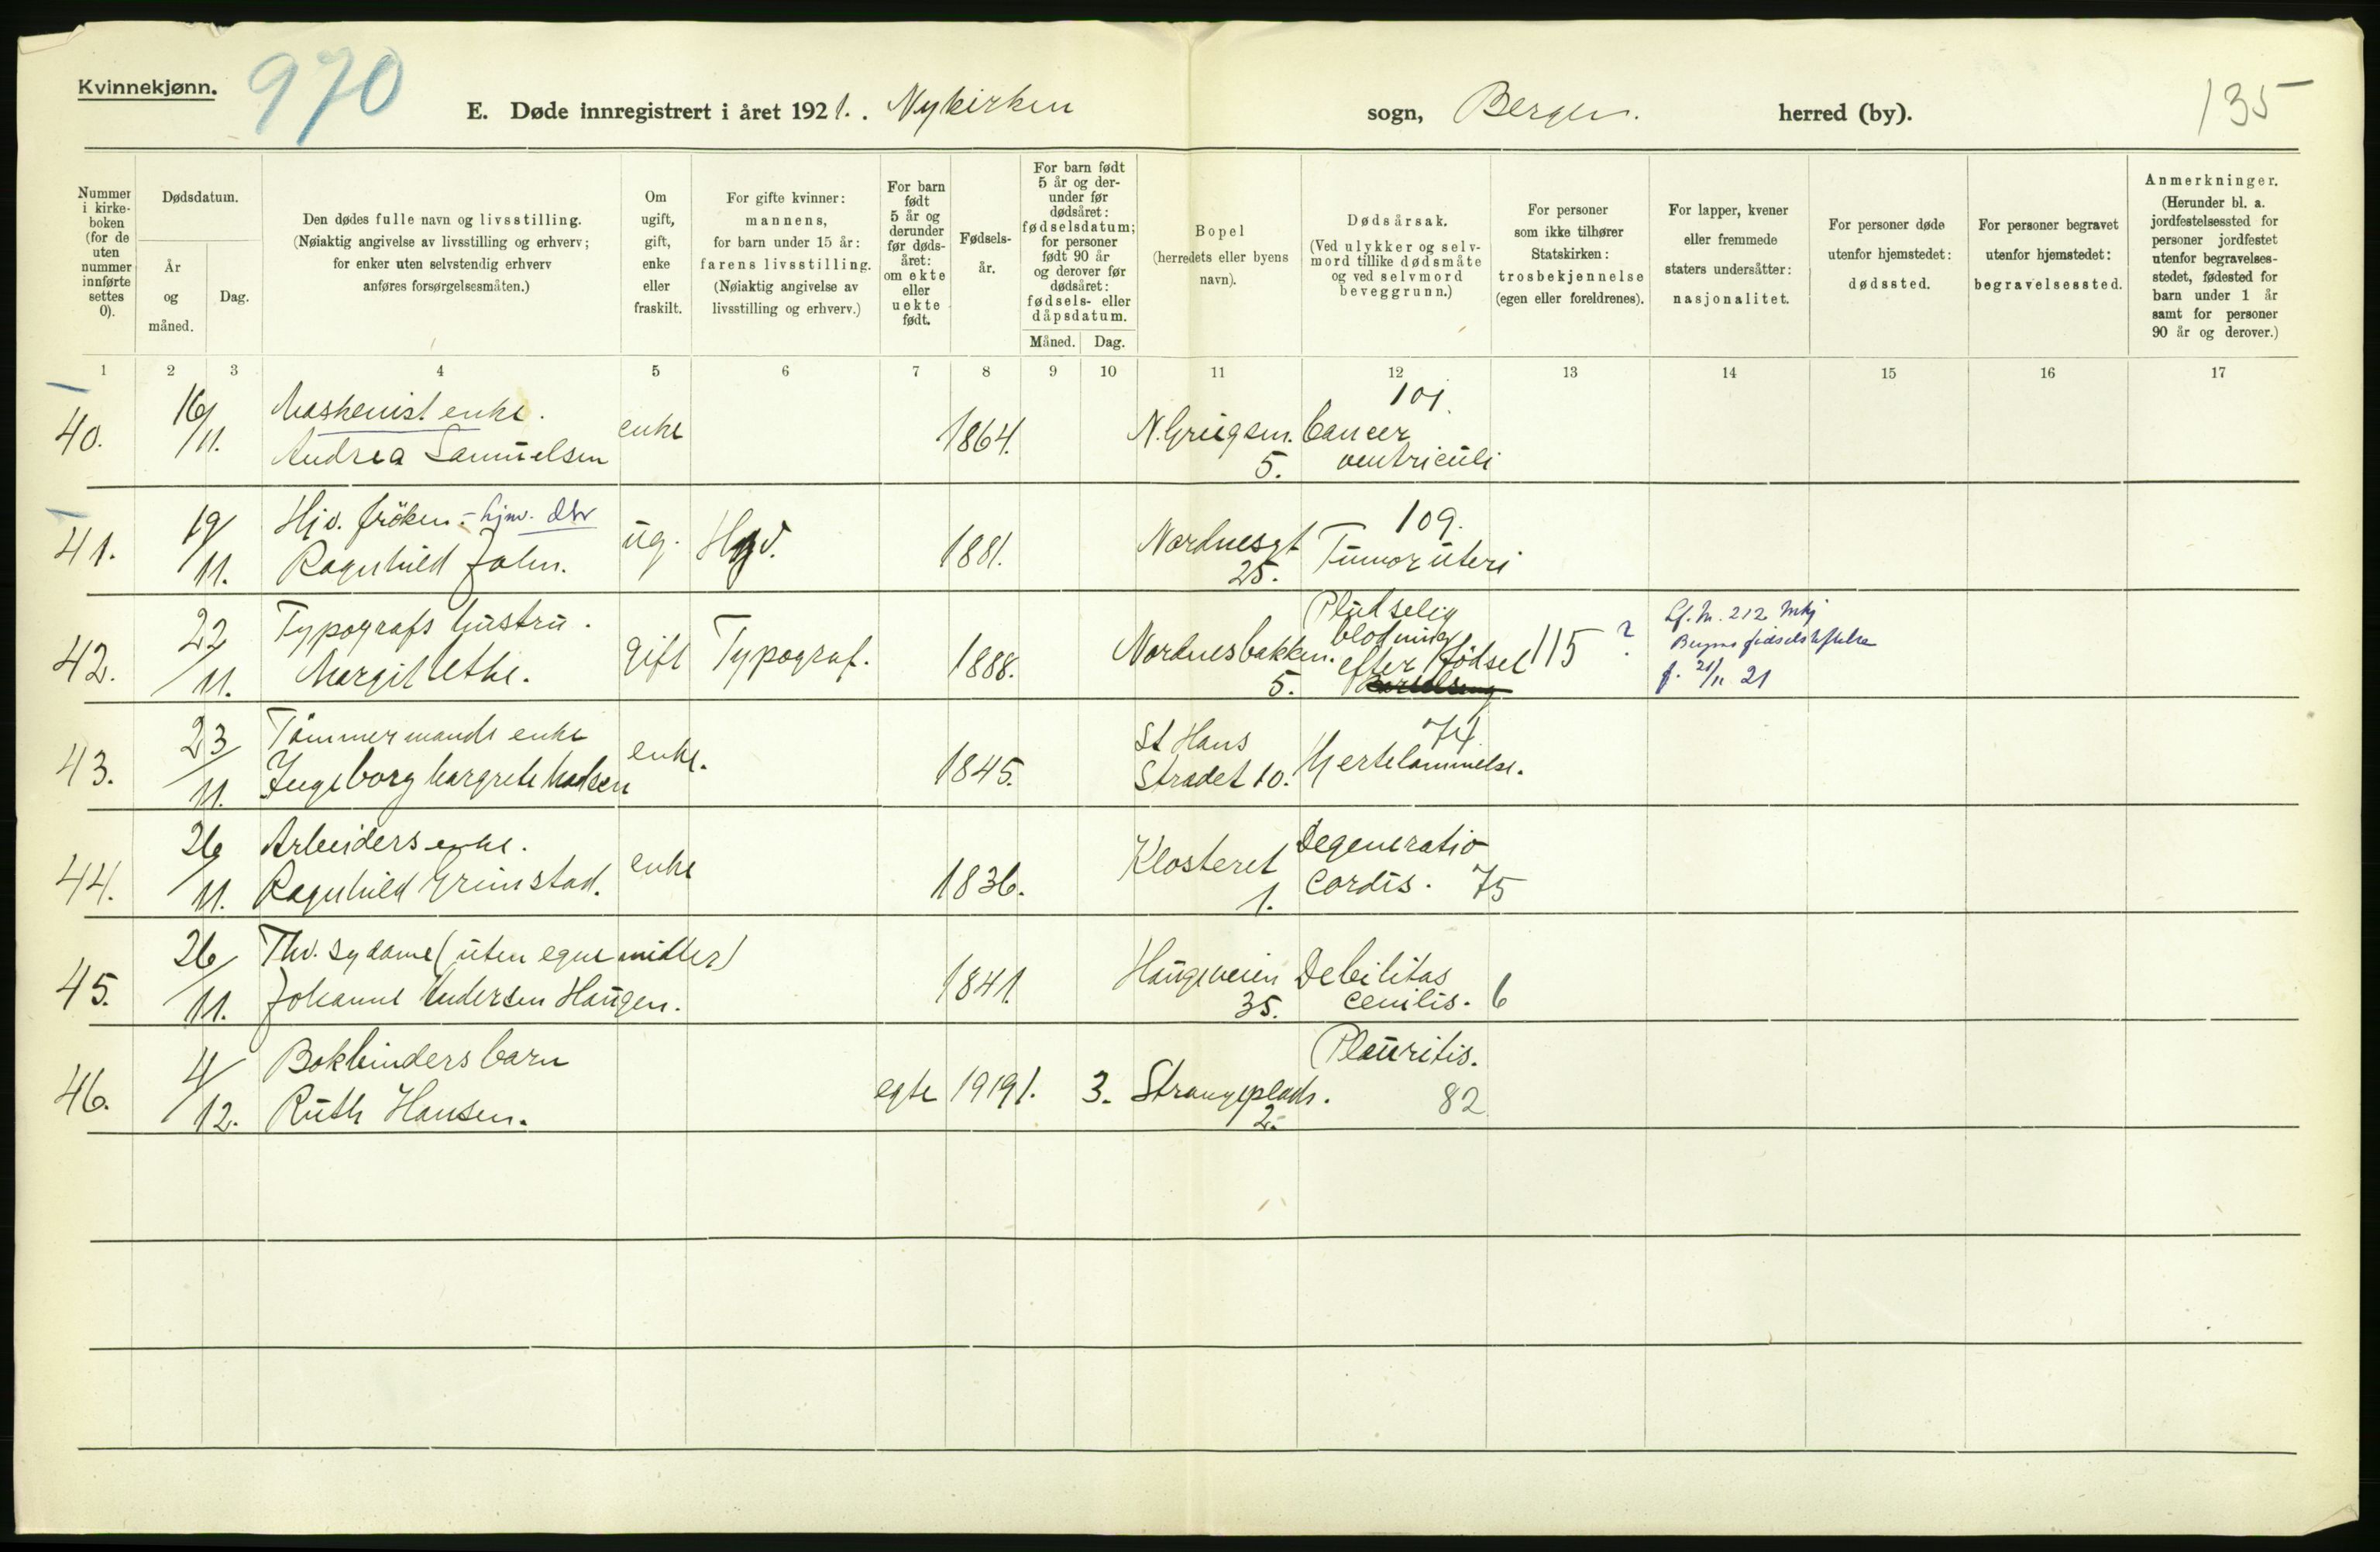 Kvinnekjønn.
970
E. Døde innregistrert i året 1921. Nykirken sogn, Bergen. herred (by).
135
Nummer i kirke-boken (for de uten nummer innførte settes 0).
Dødsdatum.
År og måned.
Dag.
Den dødes fulle navn og livsstilling.
(Nøiaktig angivelse av livsstilling og erhverv;
for enker uten selvstendig erhverv
anføres forsørgelsesmåten.)
Om ugift, gift, enke eller fraskilt.
For gifte kvinner:
mannens,
for barn under 15 år:
farens livsstilling.
(Nøiaktig angivelse av
livsstilling og erhverv.)
For barn født 5 år og derunder før døds-året: om ekte eller uekte født.
Fødsels-år.
For barn født
5 år og der-
under før
dødsåret:
fødselsdatum;
for personer
født 90 år
og derover før
dødsåret:
fødsels- eller
dåpsdatum.
Måned. Dag.
Bopel
(herredets eller byens
navn).
Dødsårsak.
(Ved ulykker og selv-
mord tillike dødsmåte
og ved selvmord
beveggrunn.)
For personer
som ikke tilhører
Statskirken:
trosbekjennelse
(egen eller foreldrenes).
For lapper, kvener
eller fremmede
staters undersåtter:
nasjonalitet.
For personer døde
utenfor hjemstedet:
dødssted.
For personer begravet
utenfor hjemstedet:
begravelsessted.
Anmerkninger.
(Herunder bl. a.
jordfestelsessted for
personer jordfestet
utenfor begravelses-
stedet, fødested for
barn under 1 år
samt for personer
90 år og derover.)
1 2 3 4 5 6 7 8 9 10 11 12 13 14 15 16 17
40. 16/11. Maskenist enke.
Andrea Samuelsen
enke 1864. N. Griegsm. 5. 101. Cancer
ventriculi
41. 19/11. Hjv. fröken. - hjmv. dtr
Ragnhild John.
ug. Hgv. 1881. Nordnesgt 25. 109.
Tumor uteri
42. 22/11. Typografs hustru.
Margit Uthe.
gift Typograf. 1888. Nordnesbakken. 5. Pludselig
blodning
efter födsel 115 ?
Lf. Nr. 212 Mkj
f. 21/11 21
43. 23/11. Tömmermands enke
Ingeborg Margrete Madsen
enke. 1845. St Hans
Stradet 10. 74
Hjertelammelse.
44. 26/11. Arbeiders enke.
Ragnhild Grimstad.
enke 1836. Klosteret
1. Degeneratio
cordis. 75
45. 26/11. Thv. sydame (uten egne midler)
Johanne Andersen Haugen.
1841. Haugeveien
35. Debilitas
cenilis. 6
46. 4/12. Bokbinders barn
Ruth Hansen.
egte 1919 1. 3. Strangeplads.
2. Plauritis.
82